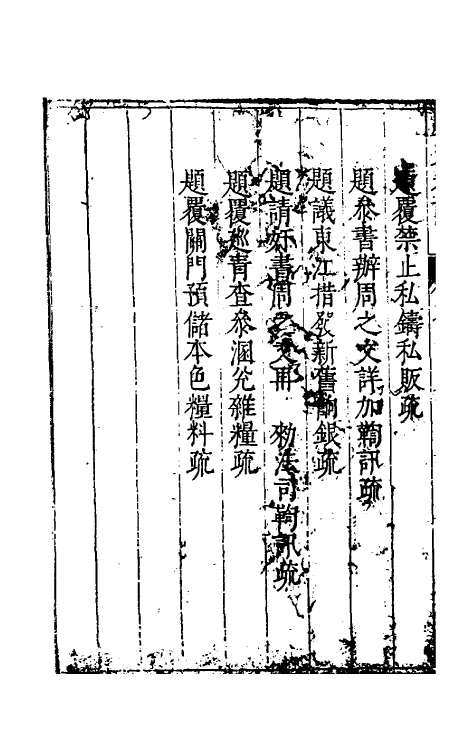 題覆禁止私鑄私販疏
題叅書辦周之文詳加鞫訊疏
題議東江措發新舊餉銀疏
題請奸書周之文冊 勑法司鞫訊疏
題覆廵青查叅溷兊雜糧疏
題覆關門預儲本色糧料疏